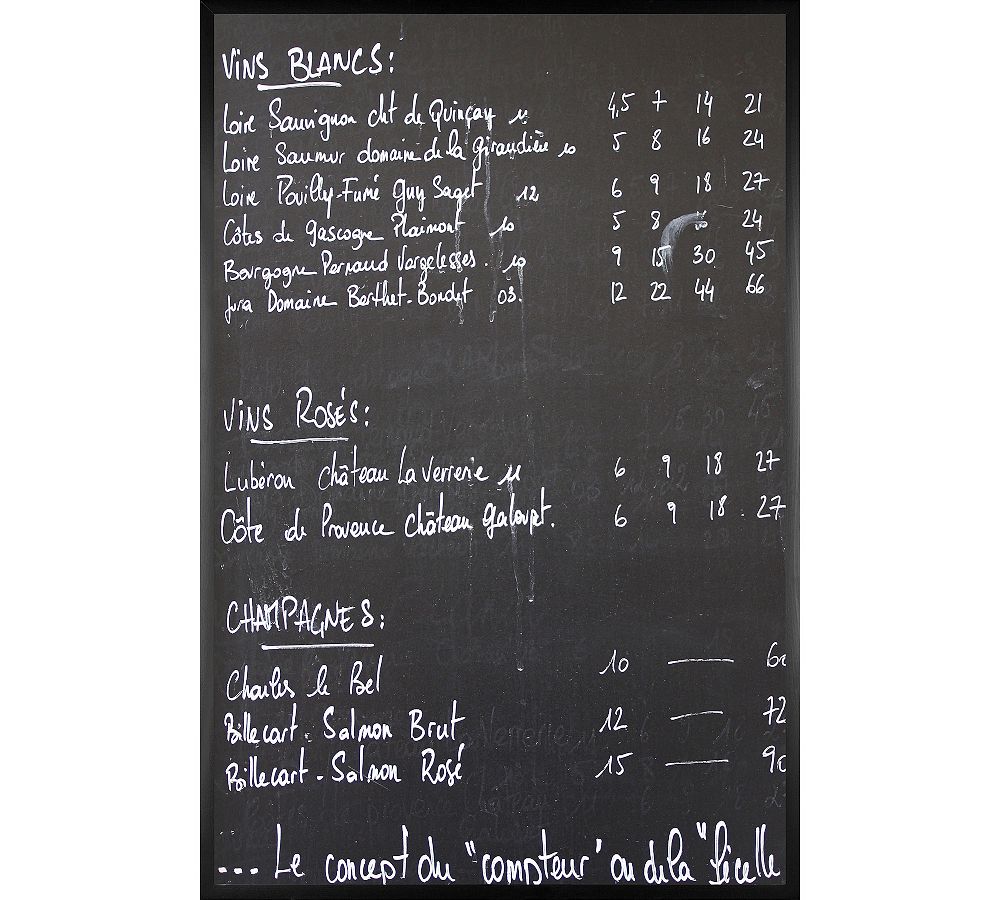 Vins BLANCS:
Loire Sauvignon cht de Quinçay 11 4,5 7 14 21
Loire Saumur domaine de la Giraudière 10 5 8 16 24
Loire Pouilly-Fumé Guy Saget 12 6 9 18 27
Côtes de Gascogne Plaimont 10 5 8 16 24
Bourgogne Pernaud Vergelesses. 10 9 15 30 45
Jura Domaine Berthet-Bondet 03. 12 22 44 66
Vins Rosés:
Lubéron Château La Verrerie 11 6 9 18 27
Côte de Provence Château Galoupt. 6 9 18 27
CHAMPAGNES:
Charles le Bel 10 — 60
Billecart-Salmon Brut 12 — 72
Billecart-Salmon Rosé 15 — 90
... Le concept du "compteur" ou de la "ficelle